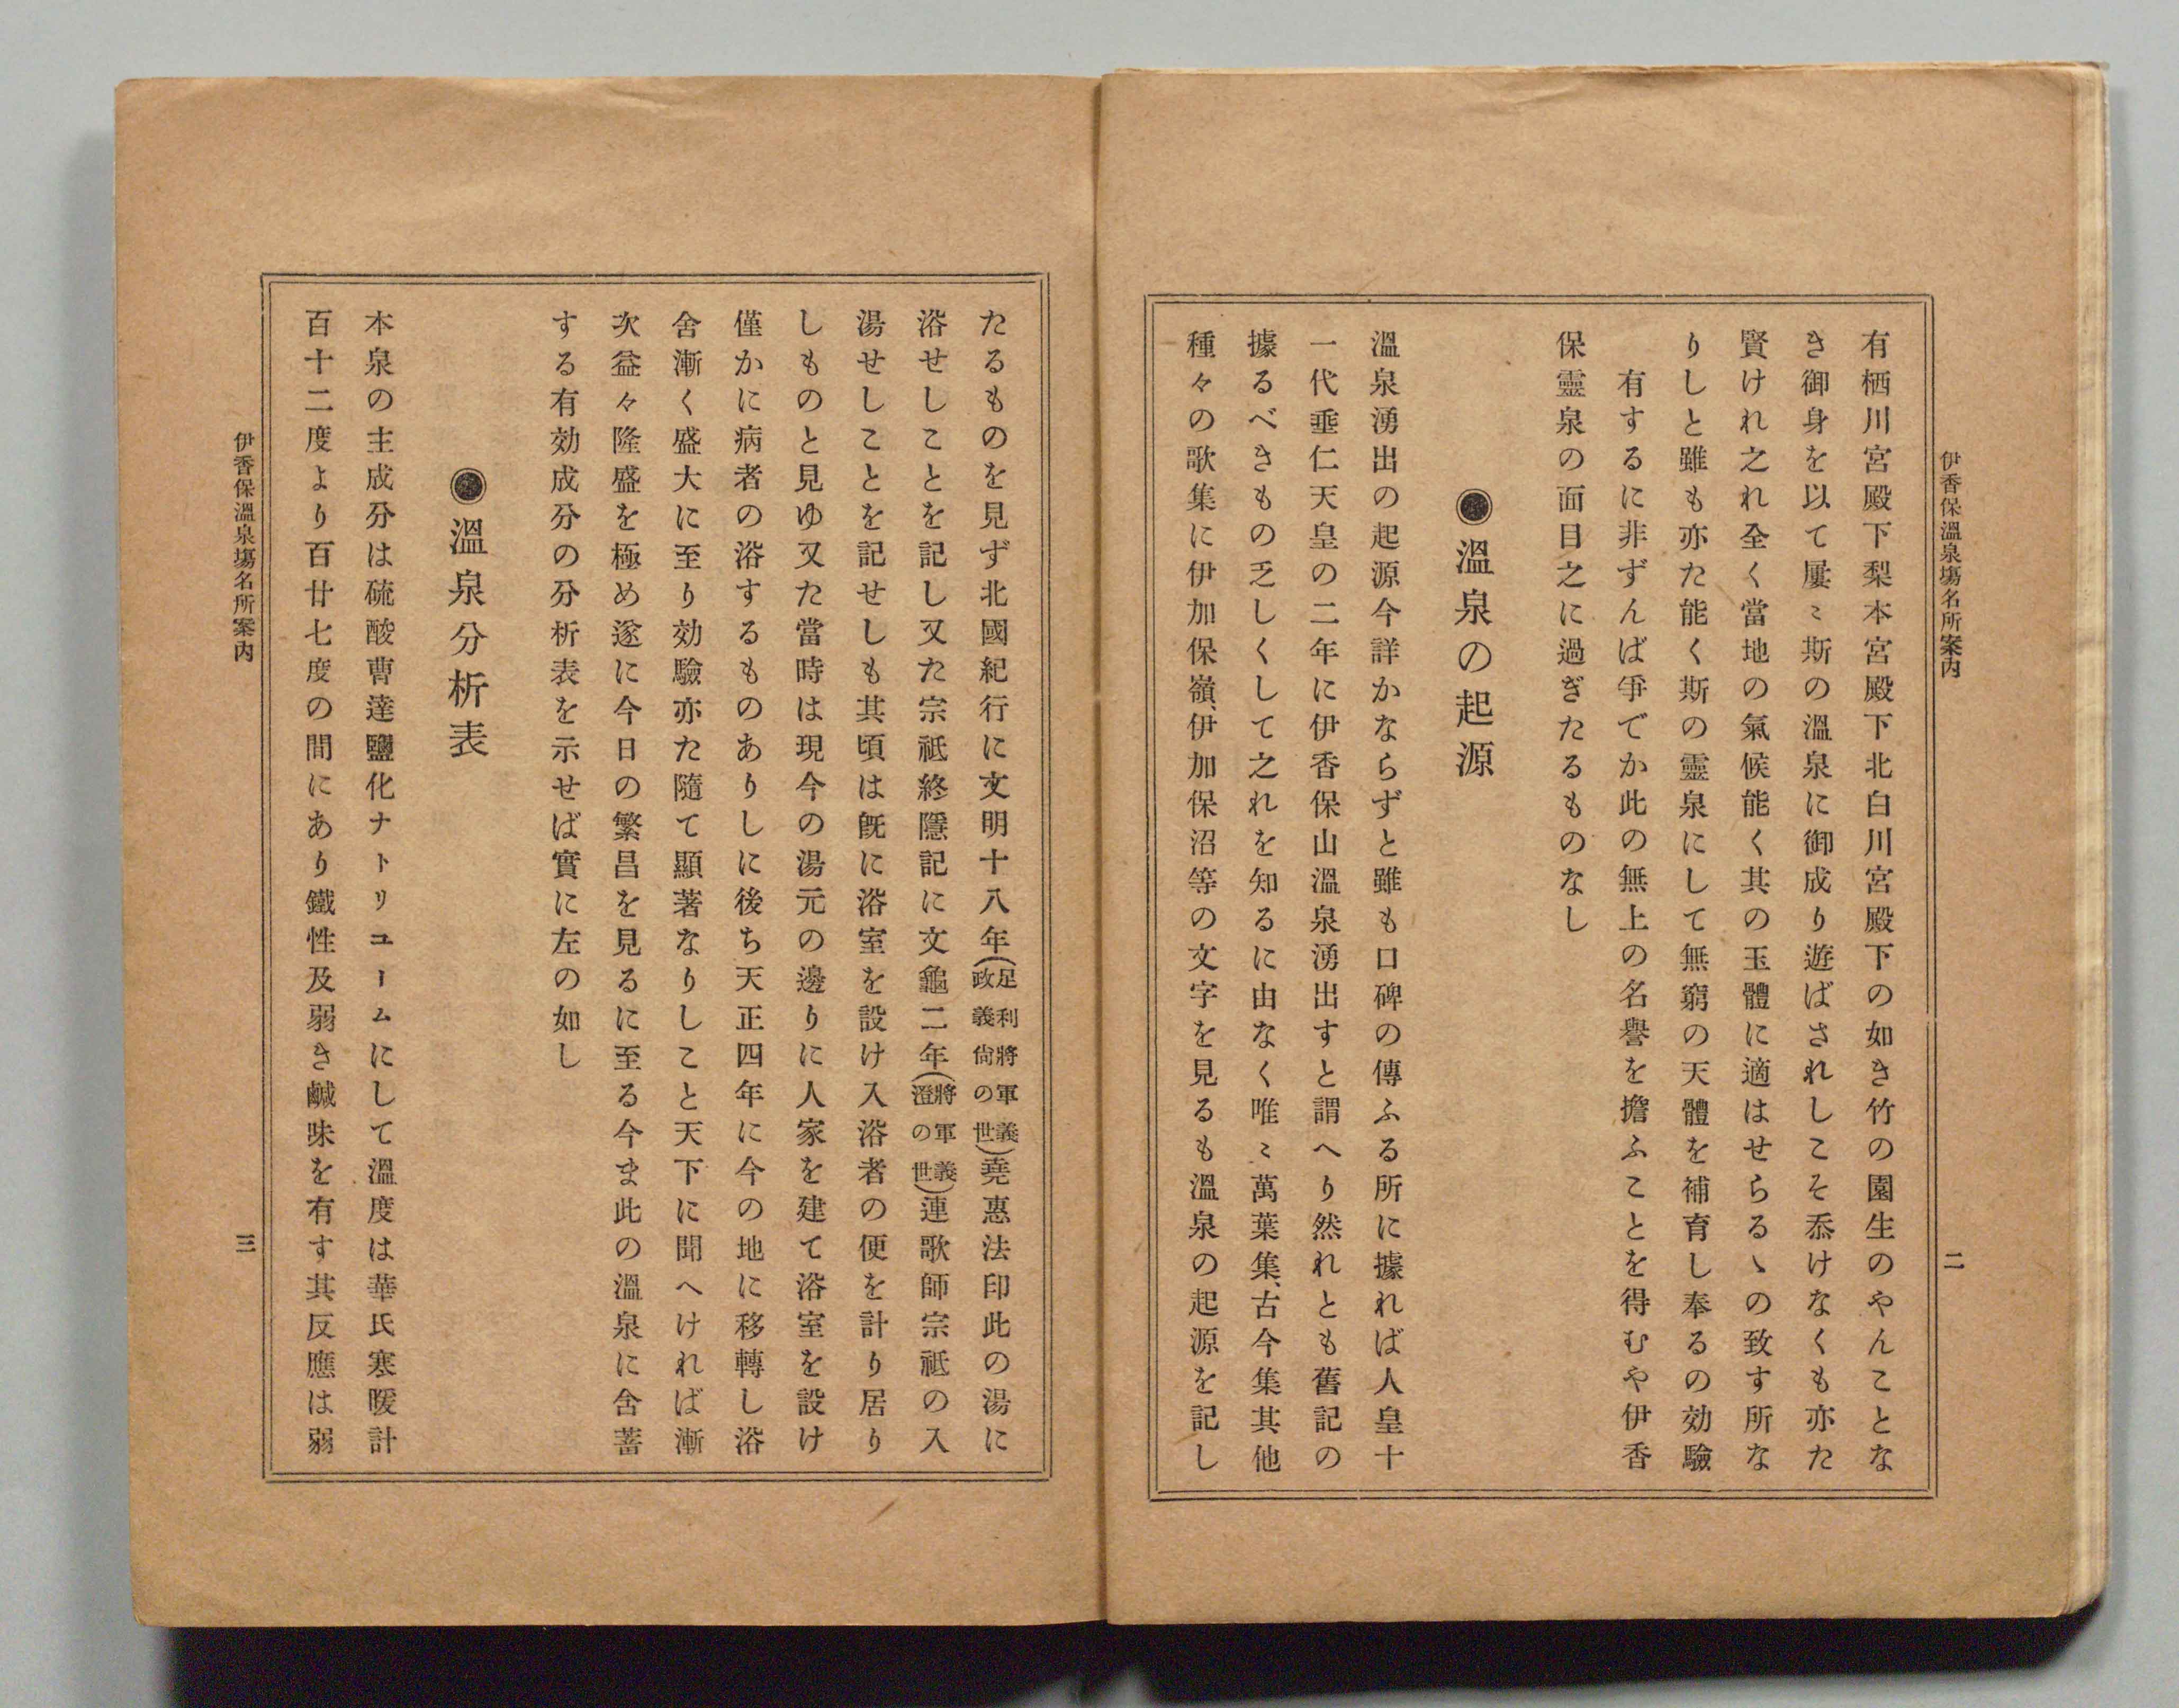 伊香保溫泉塲名所案内
二
有栖川宮殿下梨本宮殿下北白川宮殿下の如き竹の園生のやんことな
き御身を以て屢〻斯の溫泉に御成り遊ばされしこそ忝けなくも亦た
賢けれ之れ全く當地の氣候能く其の玉體に適はせらるヽの致す所な
りしと雖も亦た能く斯の靈泉にして無窮の天體を補育し奉るの効驗
有するに非ずんば爭でか此の無上の名譽を擔ふことを得むや伊香
保靈泉の面目之に過ぎたるものなし
◉溫泉の起源
溫泉湧出の起源今詳かならずと雖も口碑の傳ふる所に據れば人皇十
一代垂仁天皇の二年に伊香保山溫泉湧出すと謂へり然れとも舊記の
據るべきもの乏しくして之れを知るに由なく唯〻萬葉集、古今集其他
種々の歌集に伊加保嶺、伊加保沼等の文字を見るも溫泉の起源を記し
たるものを見ず北國紀行に文明十八年(足利將軍義政義尙の世)堯惠法印此の湯に
浴せしことを記し又た宗祇終隱記に文龜二年(將軍義澄の世)連歌師宗祗の入
湯せしことを記せしも其頃は旣に浴室を設け入浴者の便を計り居り
しものと見ゆ又た當時は現今の湯元の邊りに人家を建て浴室を設け
僅かに病者の浴するものありしに後ち天正四年に今の地に移轉し浴
舍漸く盛大に至り効驗亦た隨て顯著なりしこと天下に聞へければ漸
次益々隆盛を極め遂に今日の繁昌を見るに至る今ま此の溫泉に含蓄
する有効成分の分析表を示せば實に左の如し
◉溫泉分析表
本泉の主成分は硫酸曹達鹽化ナトリユームにして溫度は華氏寒暖計
百十二度より百廿七度の間にあり鐵性及弱き鹹味を有す其反應は弱
伊香保溫泉塲名所案内
三